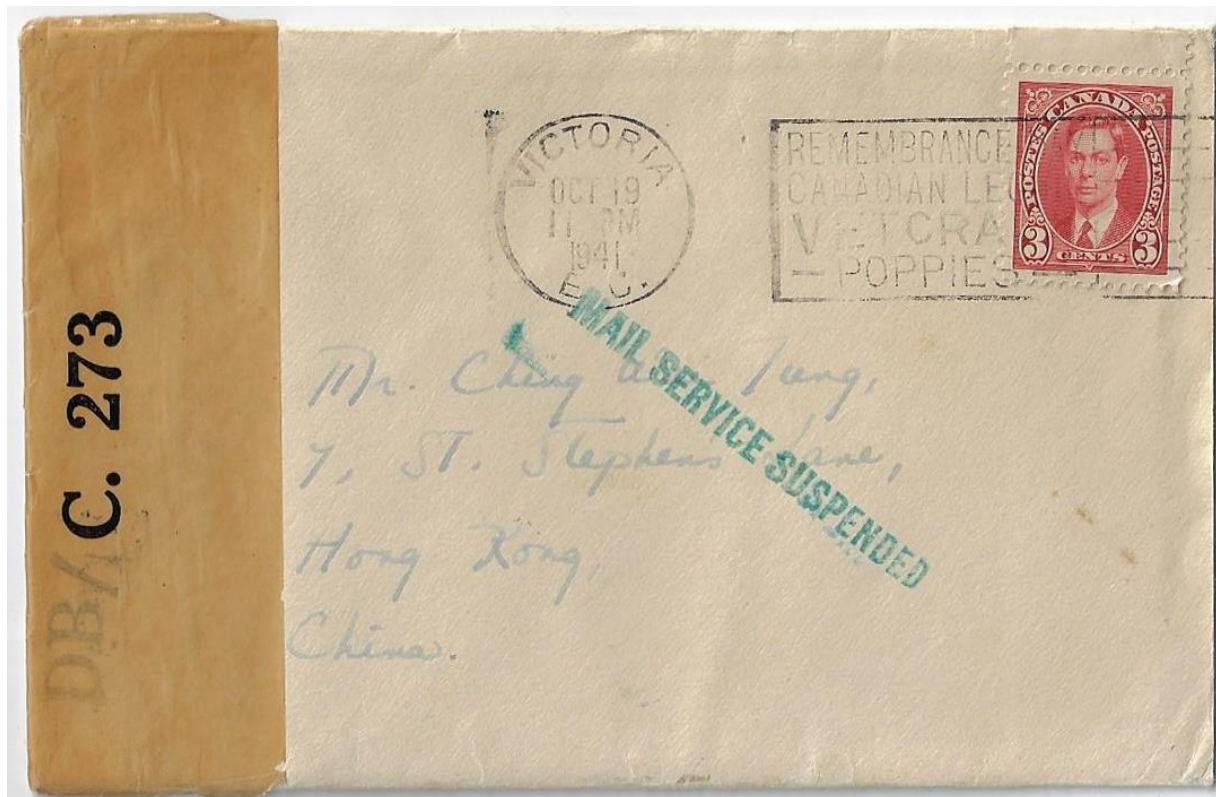 C. 273
DB/
VICTORIA
OCT 19
11 PM
1941
B.C.
REMEMBRANCE
CANADIAN LEG
VETCRA
POPPIES
POSTES CANADA POSTAGE
3 CENTS 3
MAIL SERVICE SUSPENDED
Mr. Ching
7, St. Stephens Lane,
Hong Kong,
China.